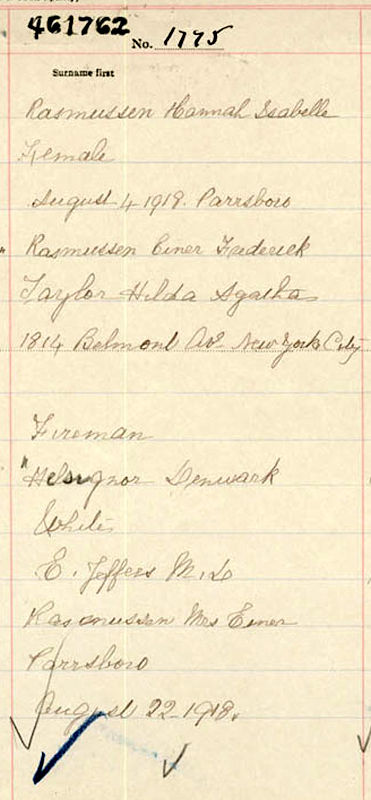 461762
No. 1775
Surname first
Rasmussen Hannah Isabelle
Female
August 4 1918. Parrsboro
" Rasmussen Einer Frederick
Taylor Hilda Agatha
1814 Belmont Av. New York City
Fireman
"Helsignor Denmark
White
E. Jeffers M.D
Rasmussen Mrs Einer
Parrsboro
August 22 1918.